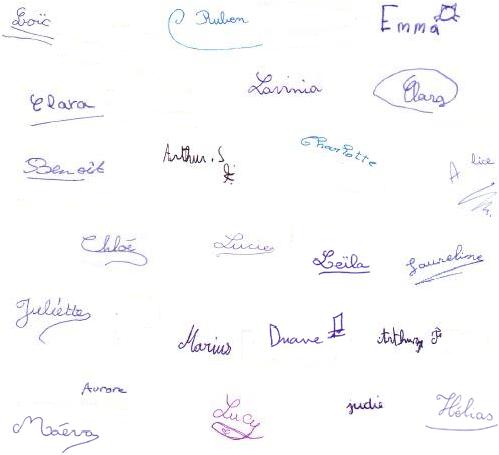 Loïc
Ruben
Emma
Clara
Lavinia
Clara
Benoît
Arthur.S
Charlotte
Alice
Chloé
Lucie
Leïla
Laureline
Juliette
Marius
Duane
Arthur P
Aurore
Maéva
Lucy
judie
Hélias